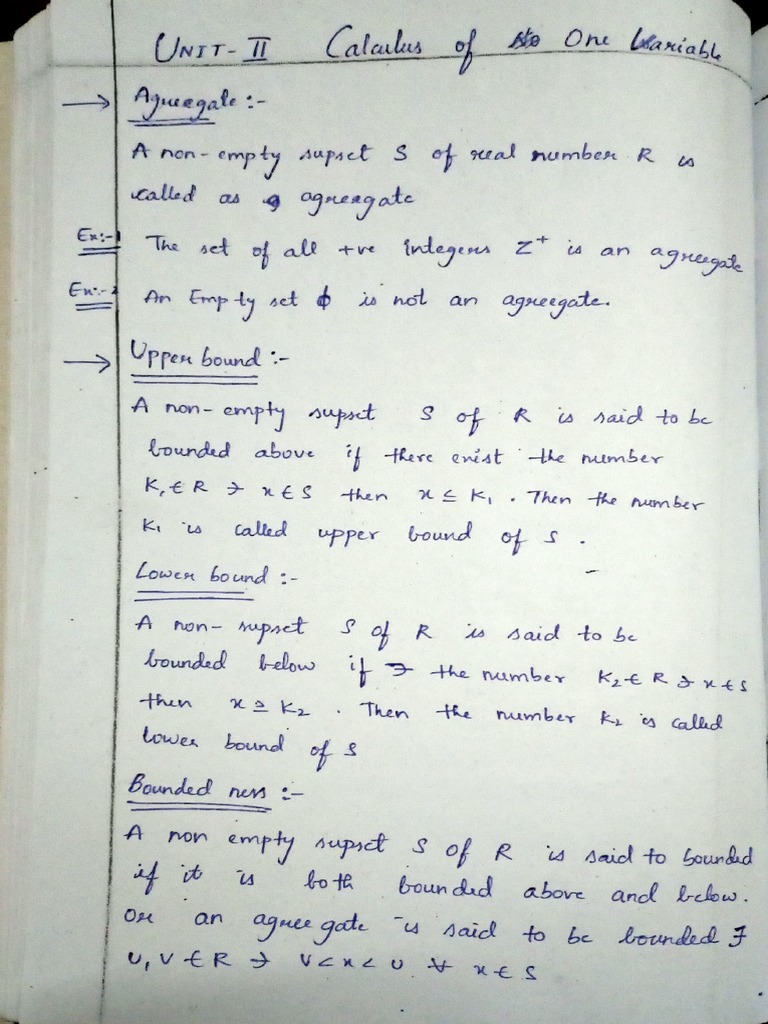 UNIT-II Calculus of One Variable
→ Agreegate :-
A non-empty supset S of real number R is
called as agreegate
Ex:-1 The set of all +ve integers Z⁺ is an agreegate
Ex:-2 An Empty set ϕ is not an agreegate.
→ Upper bound :-
A non-empty supset S of R is said to be
bounded above if there exist the number
K₁ ∈ R ∋ x ∈ S then x ≤ K₁ . Then the number
K₁ is called upper bound of S .
Lower bound :-
A non-supset S of R is said to be
bounded below if ∃ the number K₂ ∈ R ∋ x ∈ S
then x ≥ K₂ . Then the number K₂ is called
lower bound of S
Bounded ness :-
A non empty supset S of R is said to bounded
if it is both bounded above and below.
or an agreegate is said to be bounded ∃
U, V ∈ R ∋ V < x < U ∀ x ∈ S